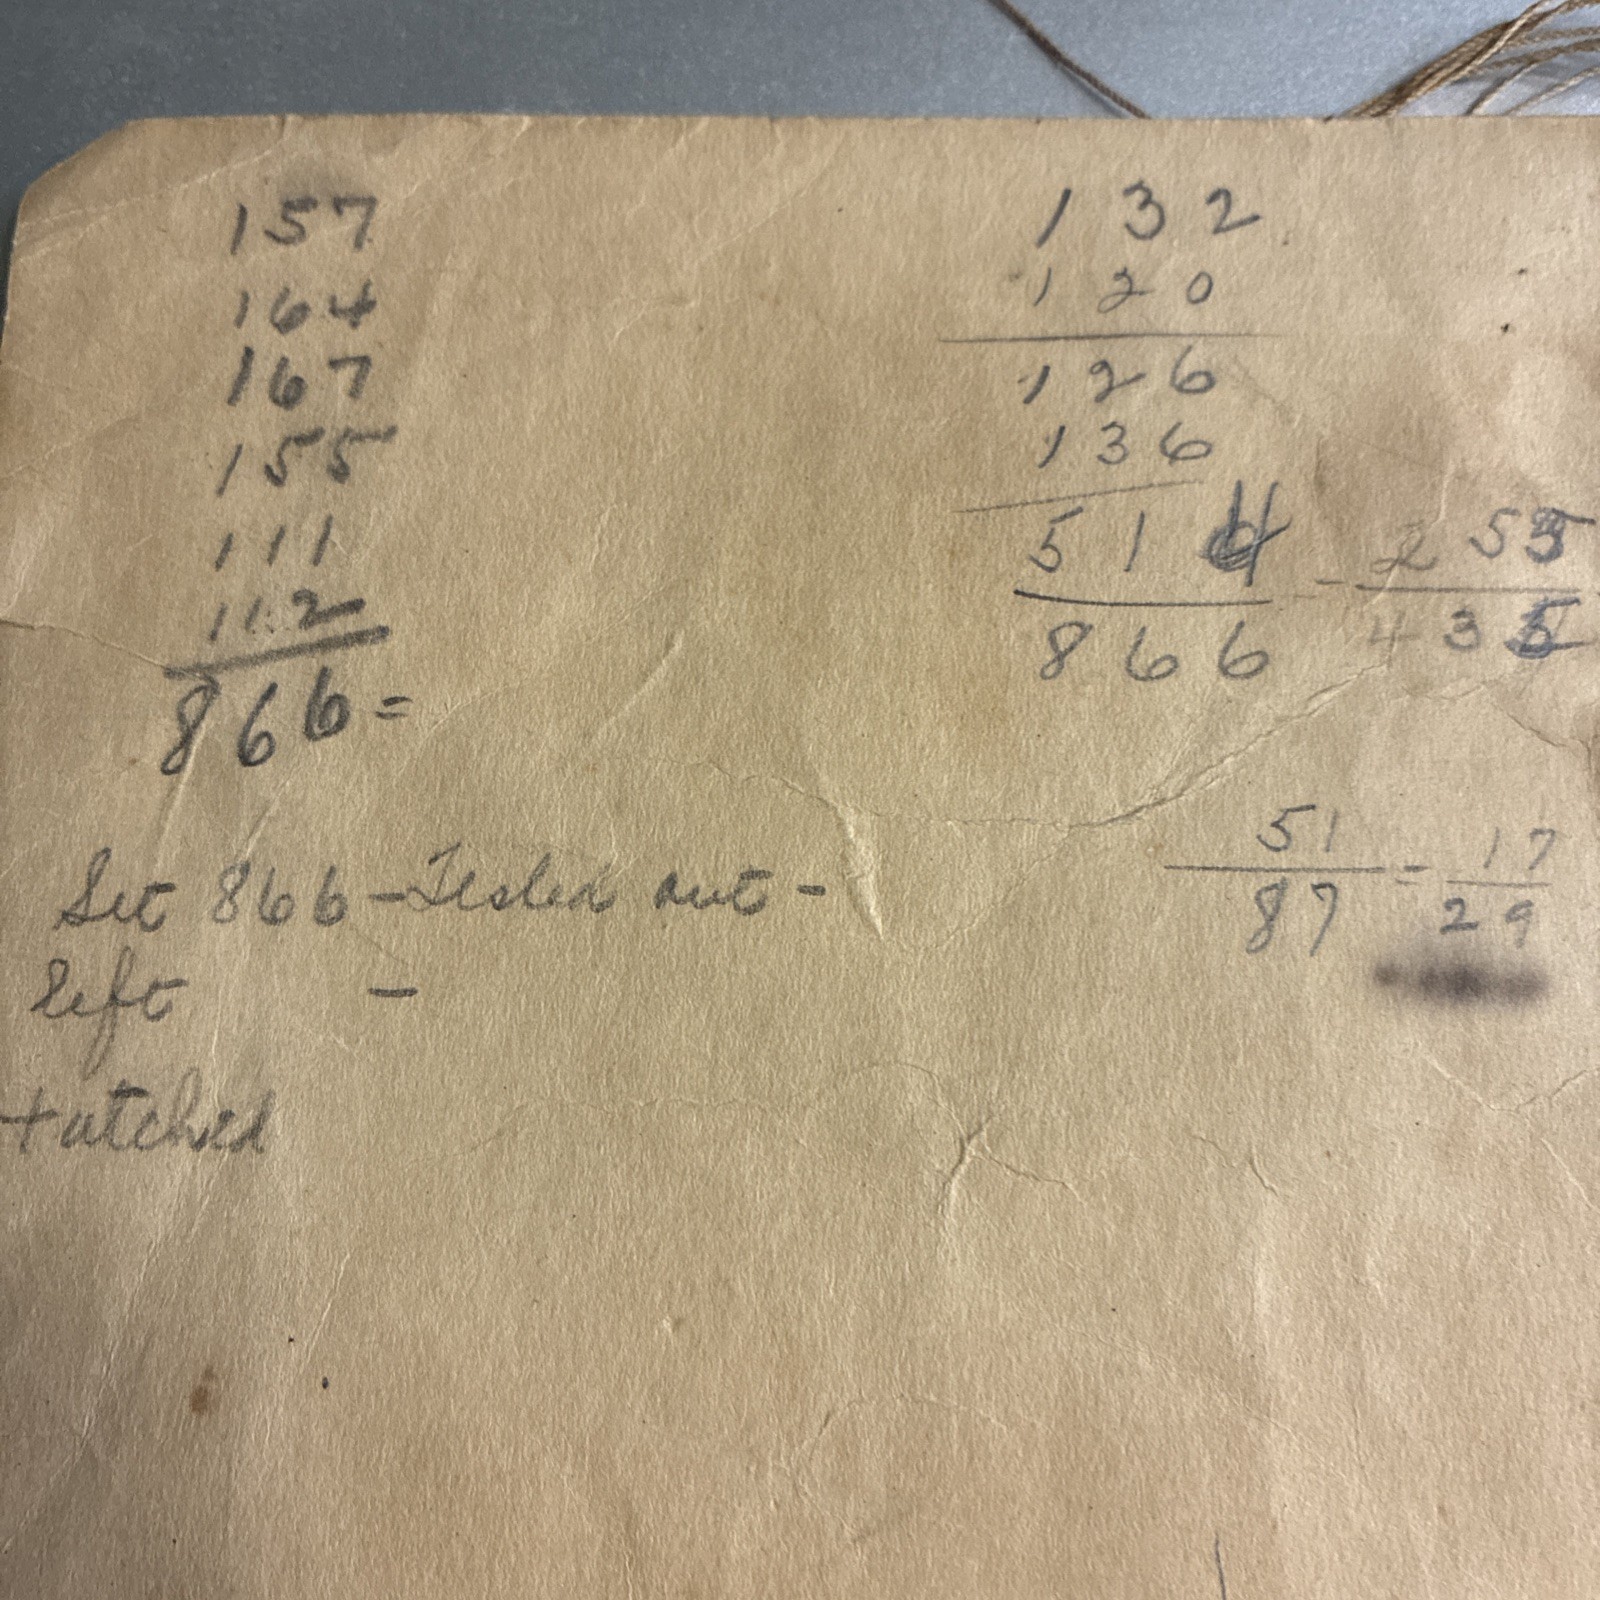 157
164
167
155
111
112
866 =
132
120
126
136
514 - 255
866 435
51 = 17
87 29
Set 866 - Tested out -
left -
Hatched